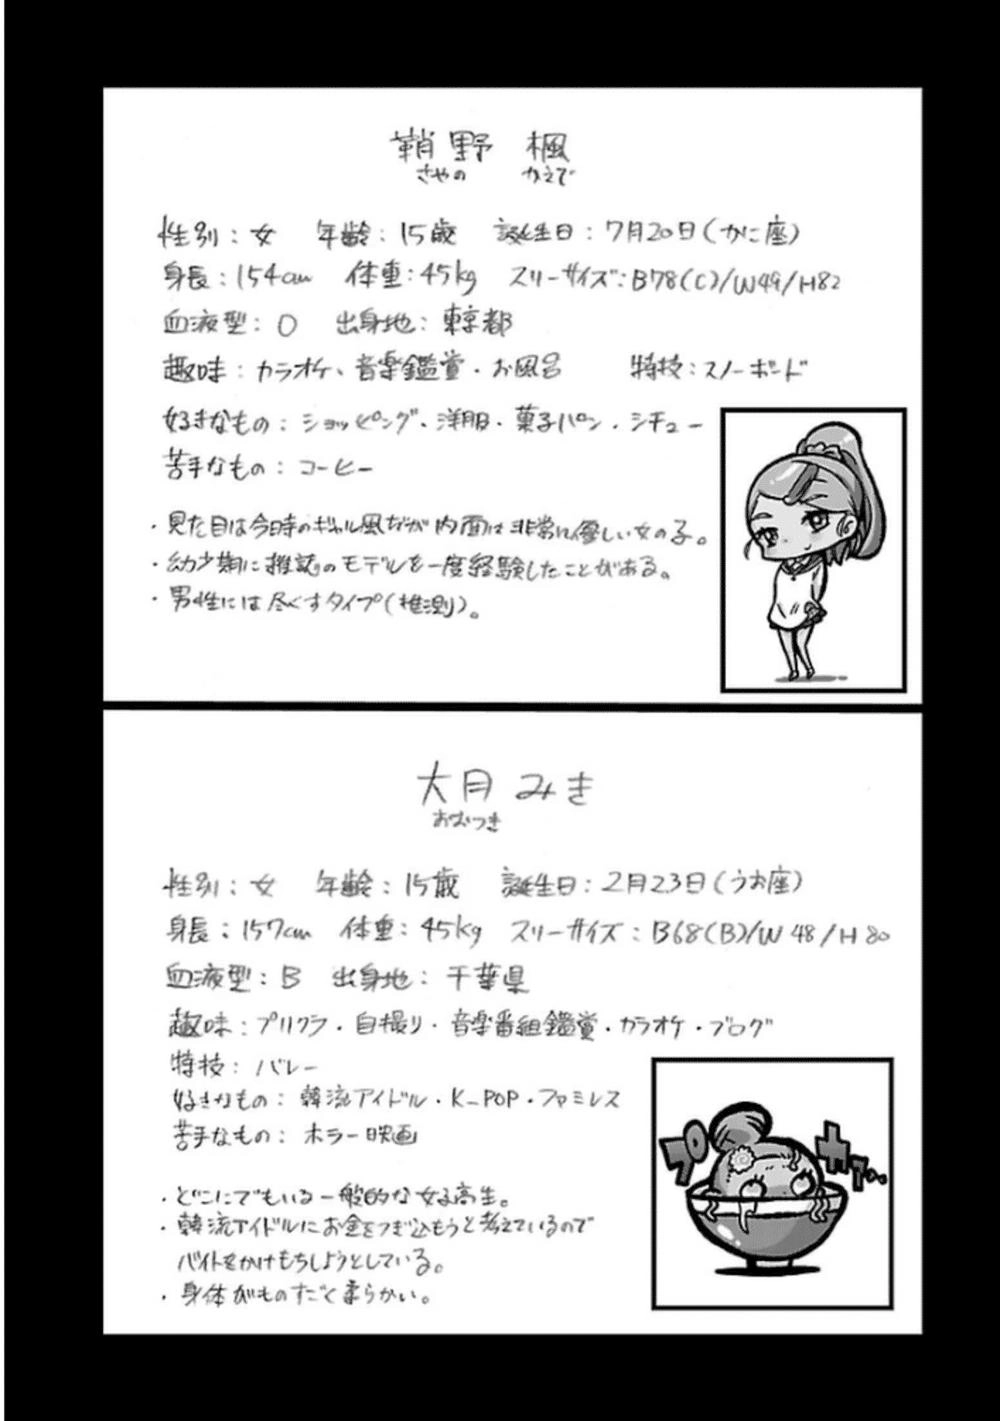 鞘野 楓
さやの かえで
性別:女 年齢:15歳 誕生日:7月20日(かに座)
身長:154cm 体重:45kg スリーサイズ:B78(C)/W49/H82
血液型:O 出身地:東京都
趣味:カラオケ、音楽鑑賞・お風呂 特技:スノーボード
好きなもの:ショッピング・洋服・菓子パン・シチュー
苦手なもの:コーヒー
・見た目は今日時のギャル風だが内面は非常に優しい女の子。
・幼少期に雑誌のモデルを一度経験したことがある。
・男性には尽くすタイプ(推測)。
大月 みき
おおつき
性別:女 年齢:15歳 誕生日:2月23日(うお座)
身長:157cm 体重:45kg スリーサイズ:B68(B)/W48/H80
血液型:B 出身地:千葉県
趣味:プリクラ・自撮り・音楽番組鑑賞・カラオケ・ブログ
特技:バレー
好きなもの:韓流アイドル・K-POP・ファミレス
苦手なもの:ホラー映画
・どこにでもいる一般的な女子高生。
・韓流アイドルにお金をつぎ込もうと考えているので
バイトをかけもちしようとしている。
・身体がものすごく柔らかい。